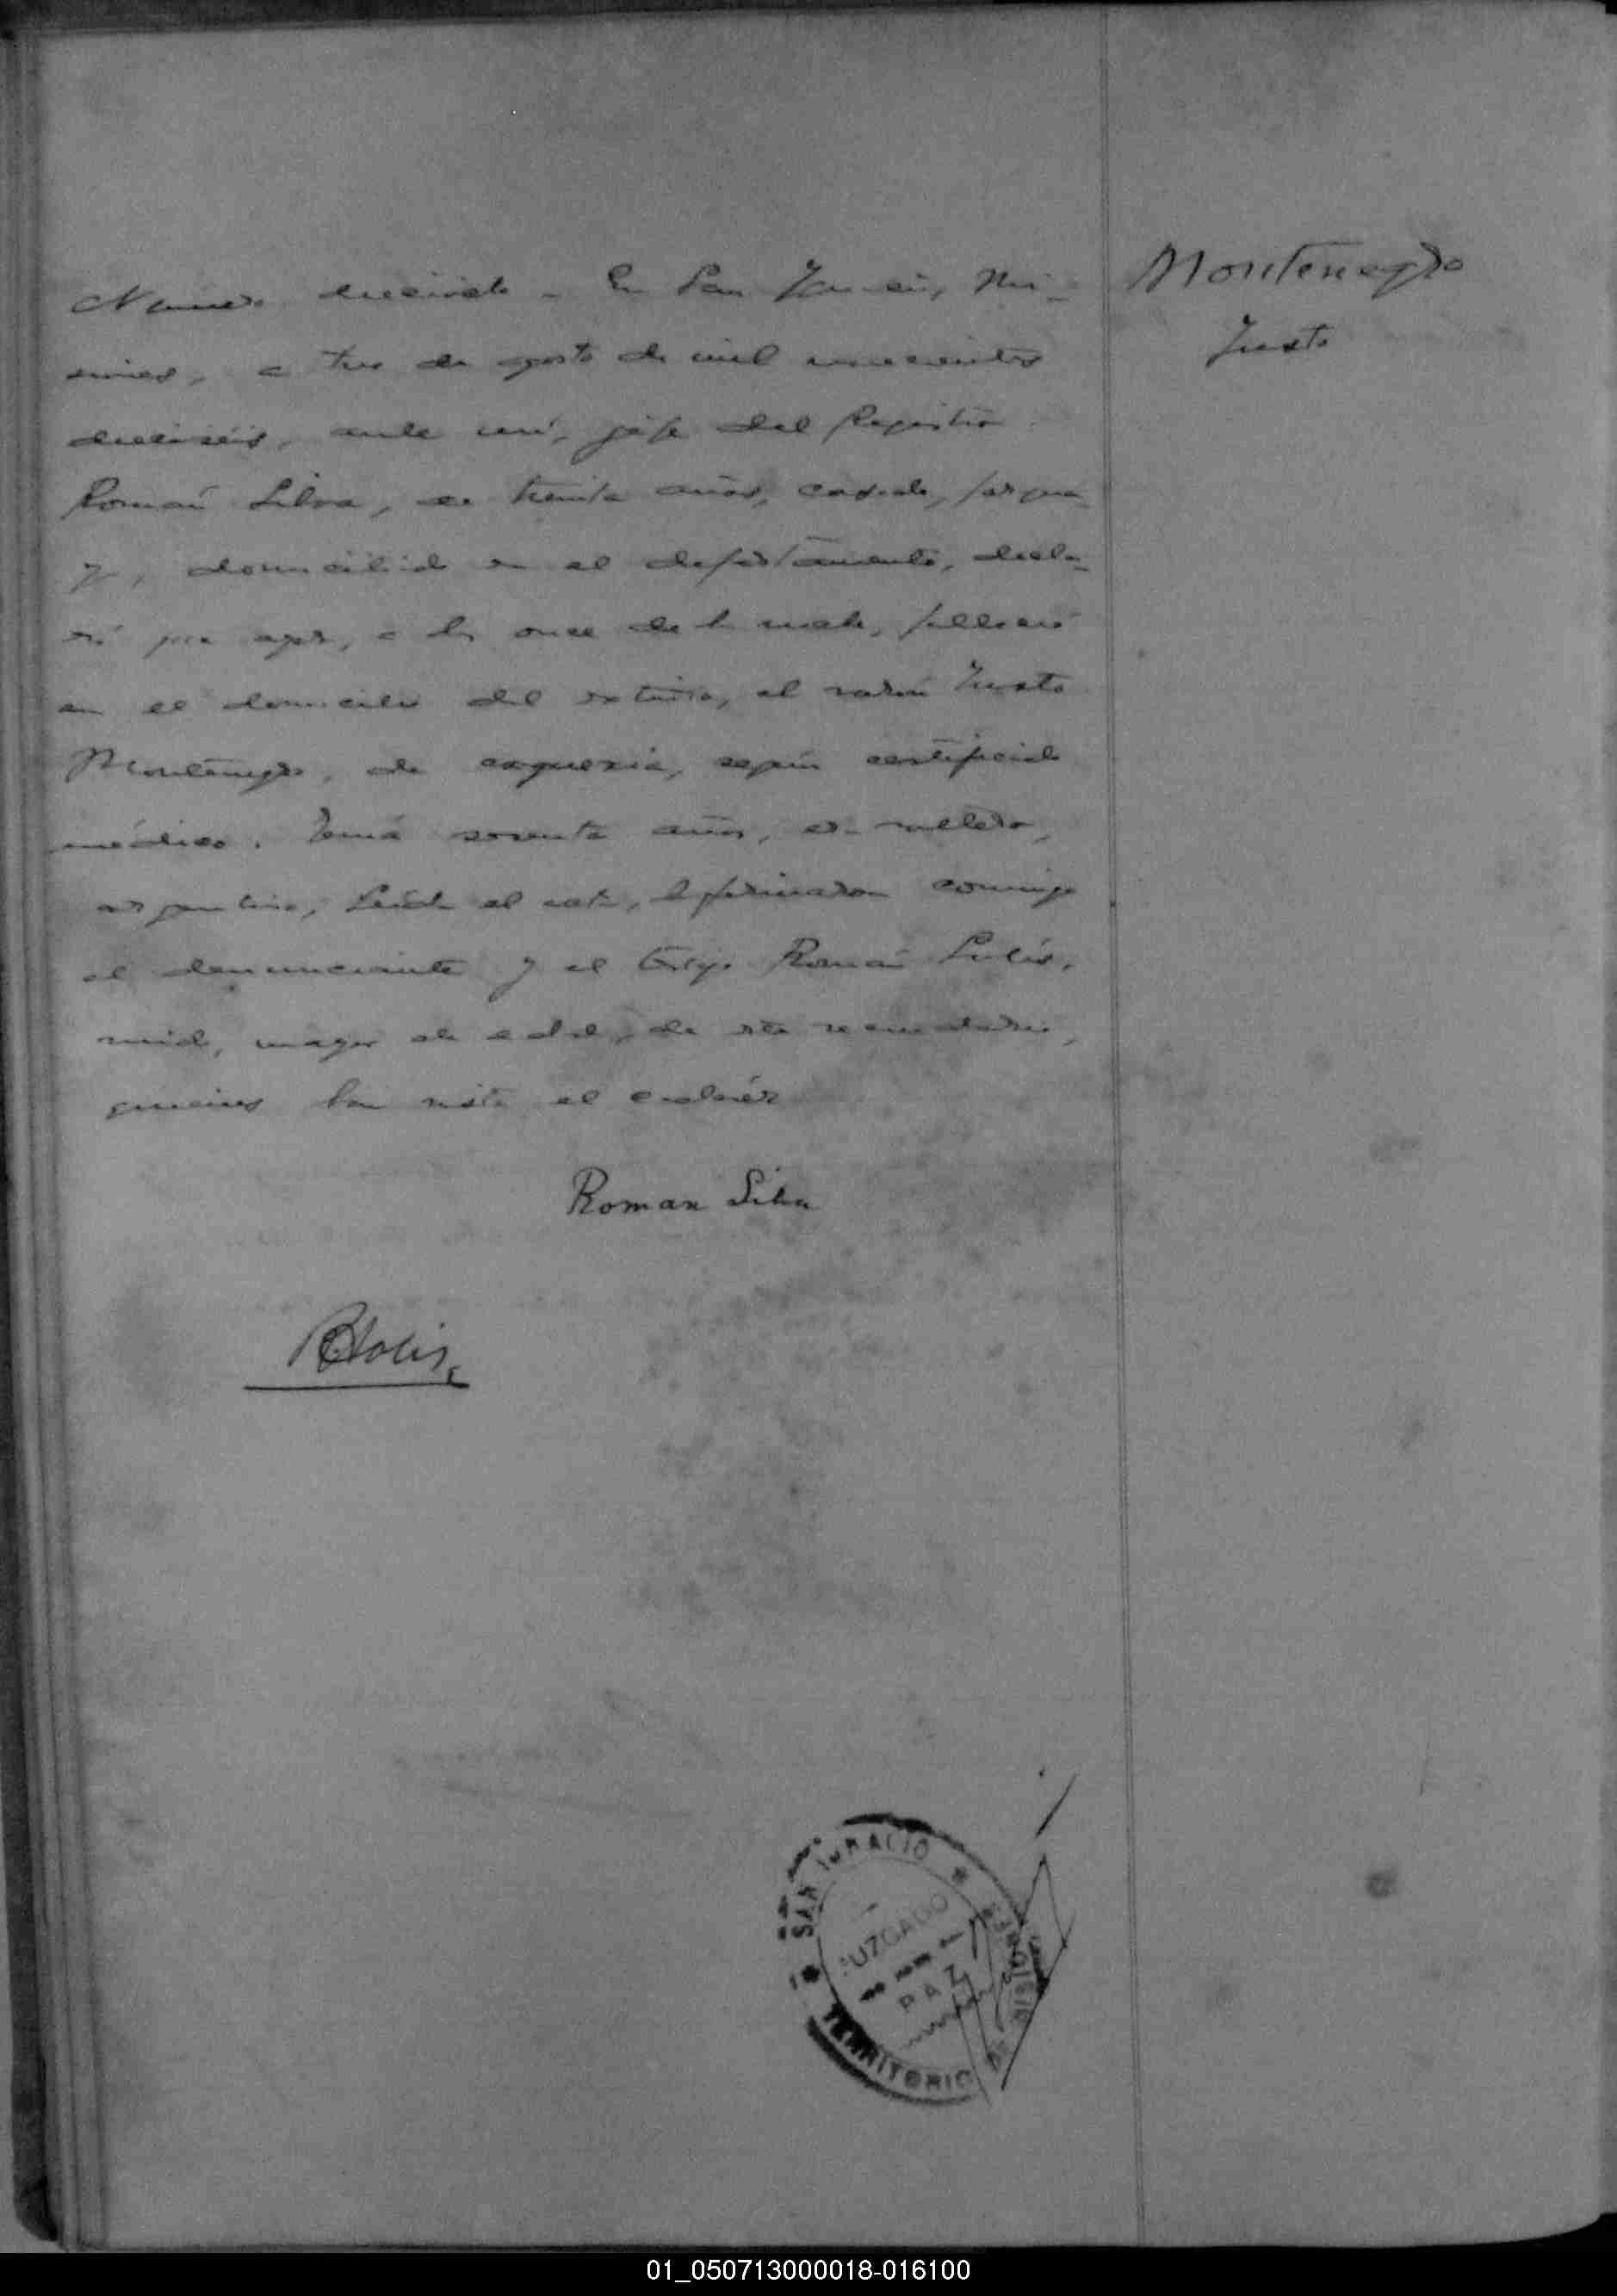 Montenegro
Justo
Numero diecisiete - En San Ignacio, Mi-
siones, a tres de agosto de mil novecientos
dieciséis, ante mí, jefe del Registro
Román Silva, de treinta años, casado,
domiciliado en el departamento, decla-
ró que ayer, a las once de la noche, falleció
en el domicilio del extinto, el varón Justo
Montenegro, de caquexia, según certificado
médico. Tenía años, era soltero,
argentino, Leida el acta, la firmaron conmigo
el denunciante y el testigo Román Solís,
mayor de edad, de este
quienes han visto el cadáver
Roman Silva
RSolis
SAN IGNACIO
JUZGADO
DE
PAZ
TERRITORIO DE MISIONES
01_050713000018-016100